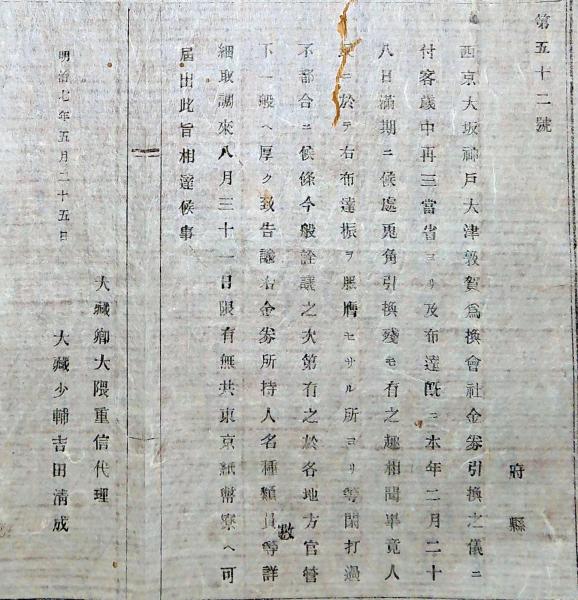 第五十二號
府縣
西京大坂神戸大津敦賀爲換會社金劵引換之儀ニ
付客歳中再三當省ヨリ及布達旣ニ本年二月二十
八日滿期ニ候處兎角引換殘モ有之趣相聞畢竟人
民ニ於テ右布達振ヲ服膺セサル所ヨリ等閑打過
不都合ニ候條今般詮議之次第有之於各地方官管
下一般ヘ厚ク致告諭右金劵所持人名種類員數等詳
細取調來八月三十一日限有無共東京紙幣寮ヘ可
屆出此旨相達候事
大藏卿大隈重信代理
明治七年五月二十五日
大藏少輔吉田淸成